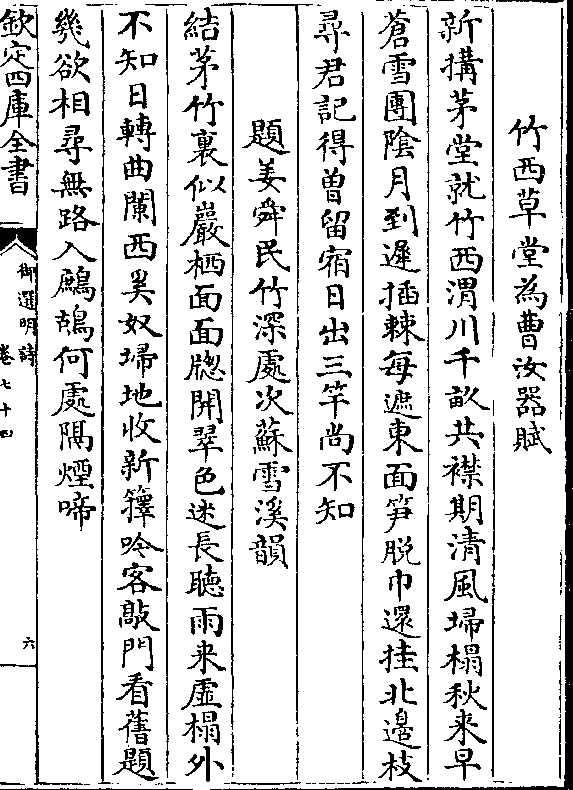 竹西草堂為曹汝器賦
新搆茅堂就竹西渭川千畝共襟期清風埽榻秋来早
蒼雪團陰月到遲插棘每遮東面笋脱巾還挂北邉枝
尋君記得曽留宿日出三竿尚不知
題姜舜民竹深處次蘇雪溪韻
結茅竹裏似巖栖面面牎開翠色迷長聽雨来虚榻外
不知日轉曲闌西奚奴埽地收新籜吟客敲門看舊題
幾欲相尋無路入鷓鴣何處隔煙啼
欽定四庫全書
御選明詩
卷七十四
六